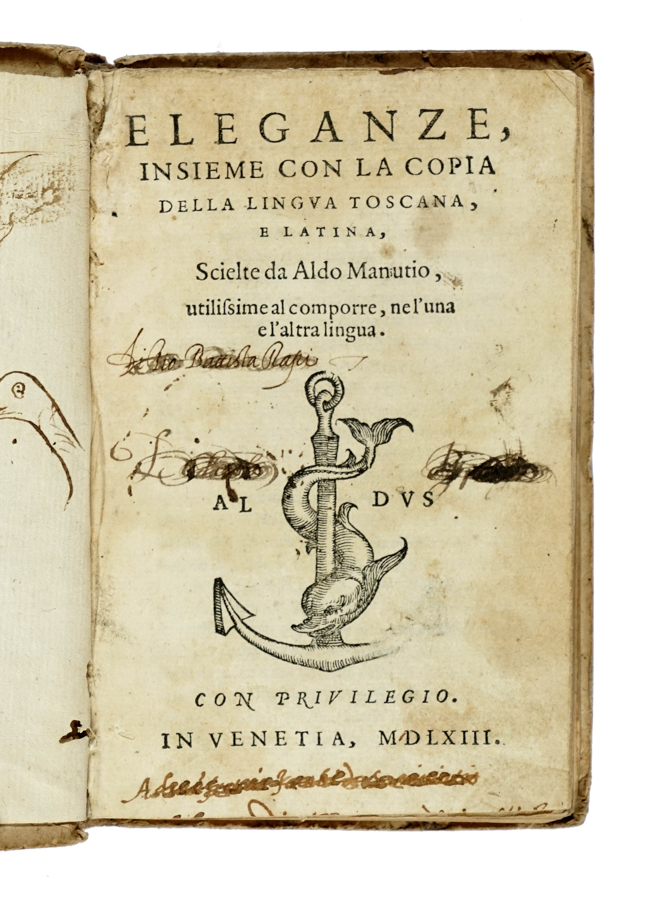 ELEGANZE,
INSIEME CON LA COPIA
DELLA LINGVA TOSCANA,
E LATINA,
Scielte da Aldo Manutio,
utiliſsime al comporre, ne l'una
e l'altra lingua.
Batista
AL DVS
CON PRIVILEGIO.
IN VENETIA, MDLXIII.